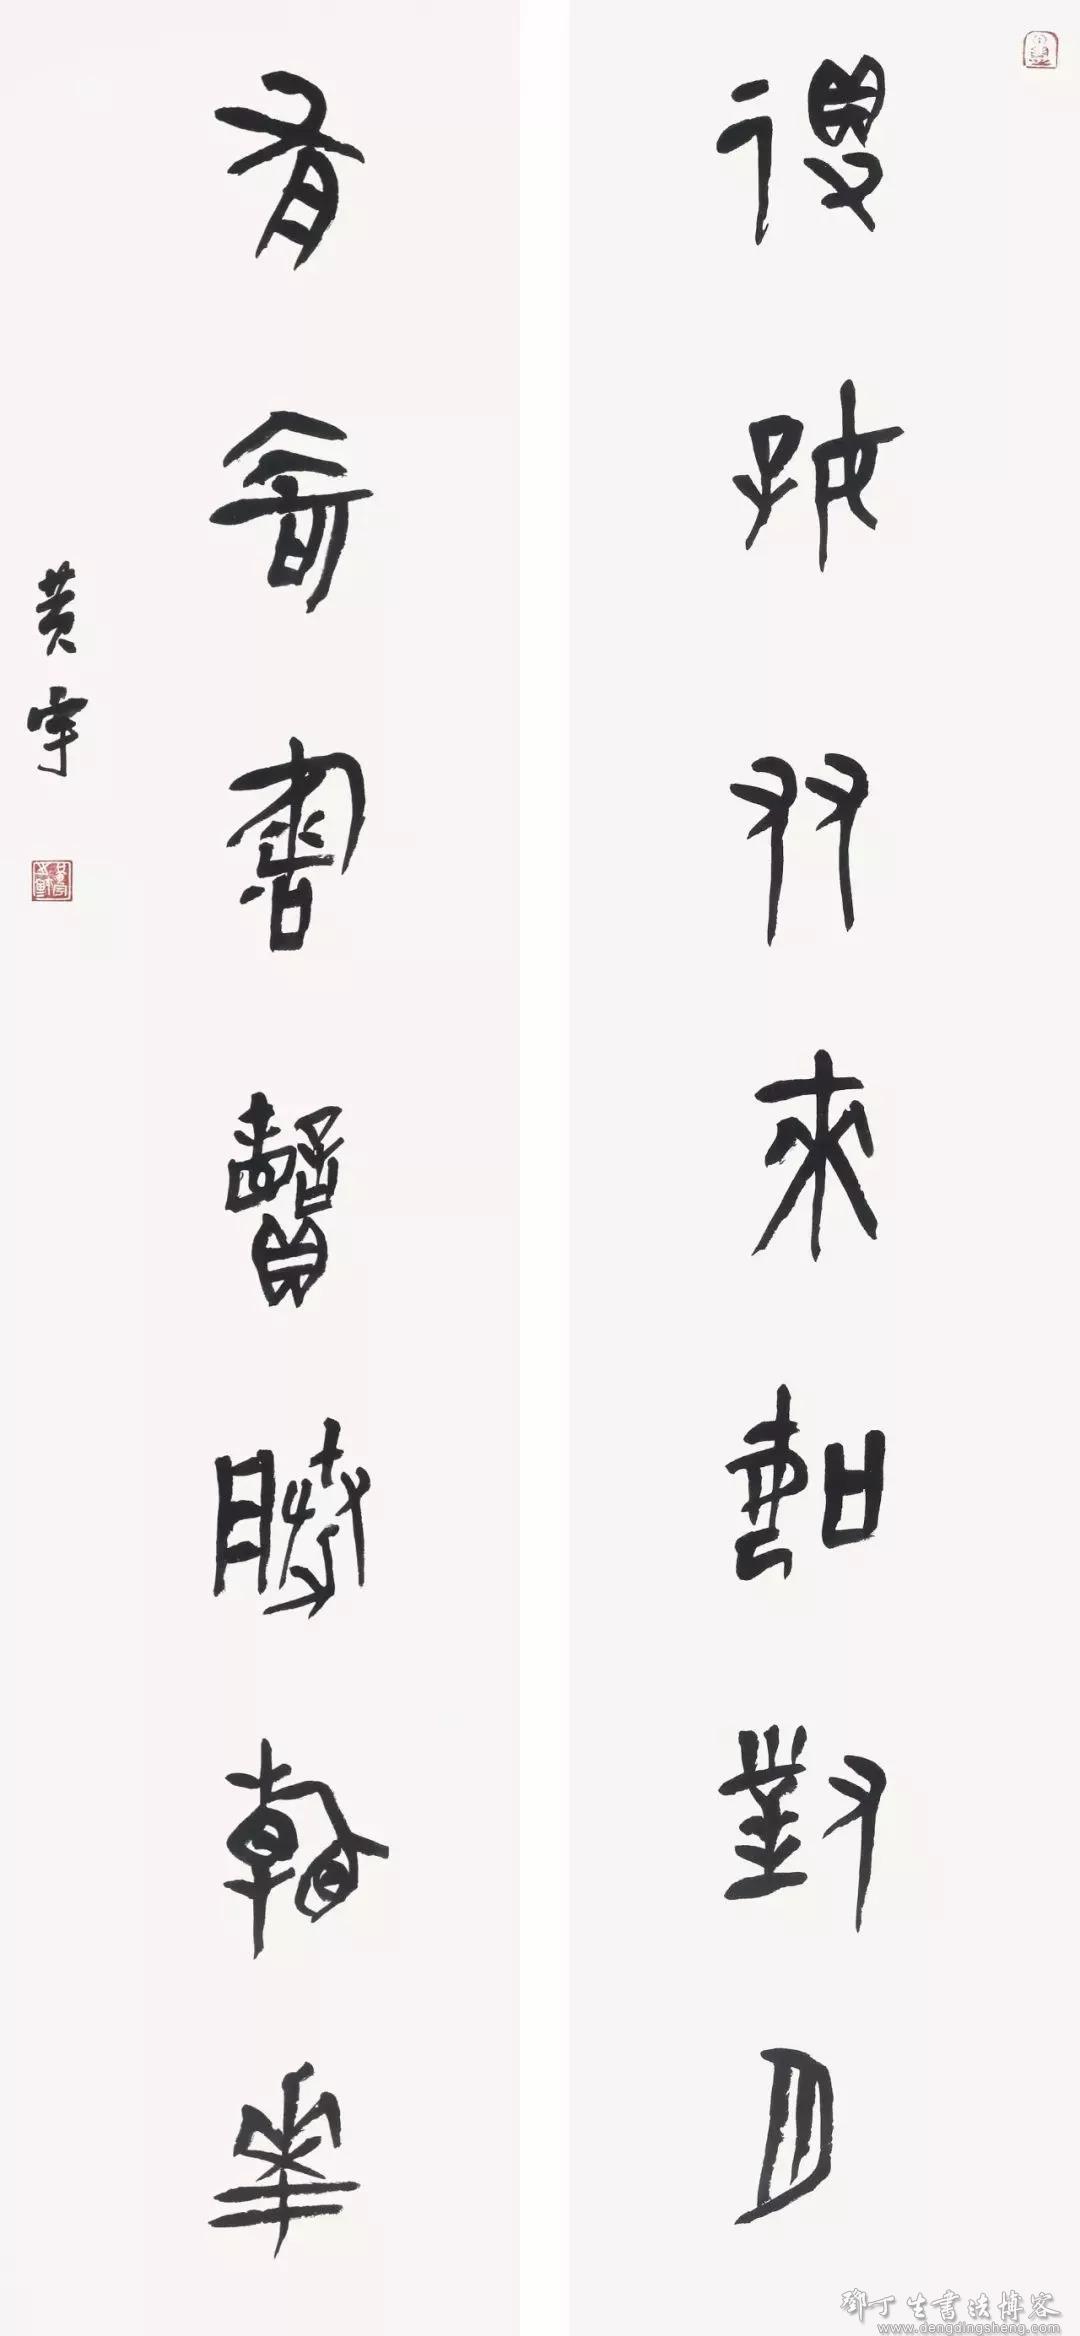 得好友來如對月
有奇書讀勝看華
黄宇
鄧丁生書法博客
www.dengdingsheng.com